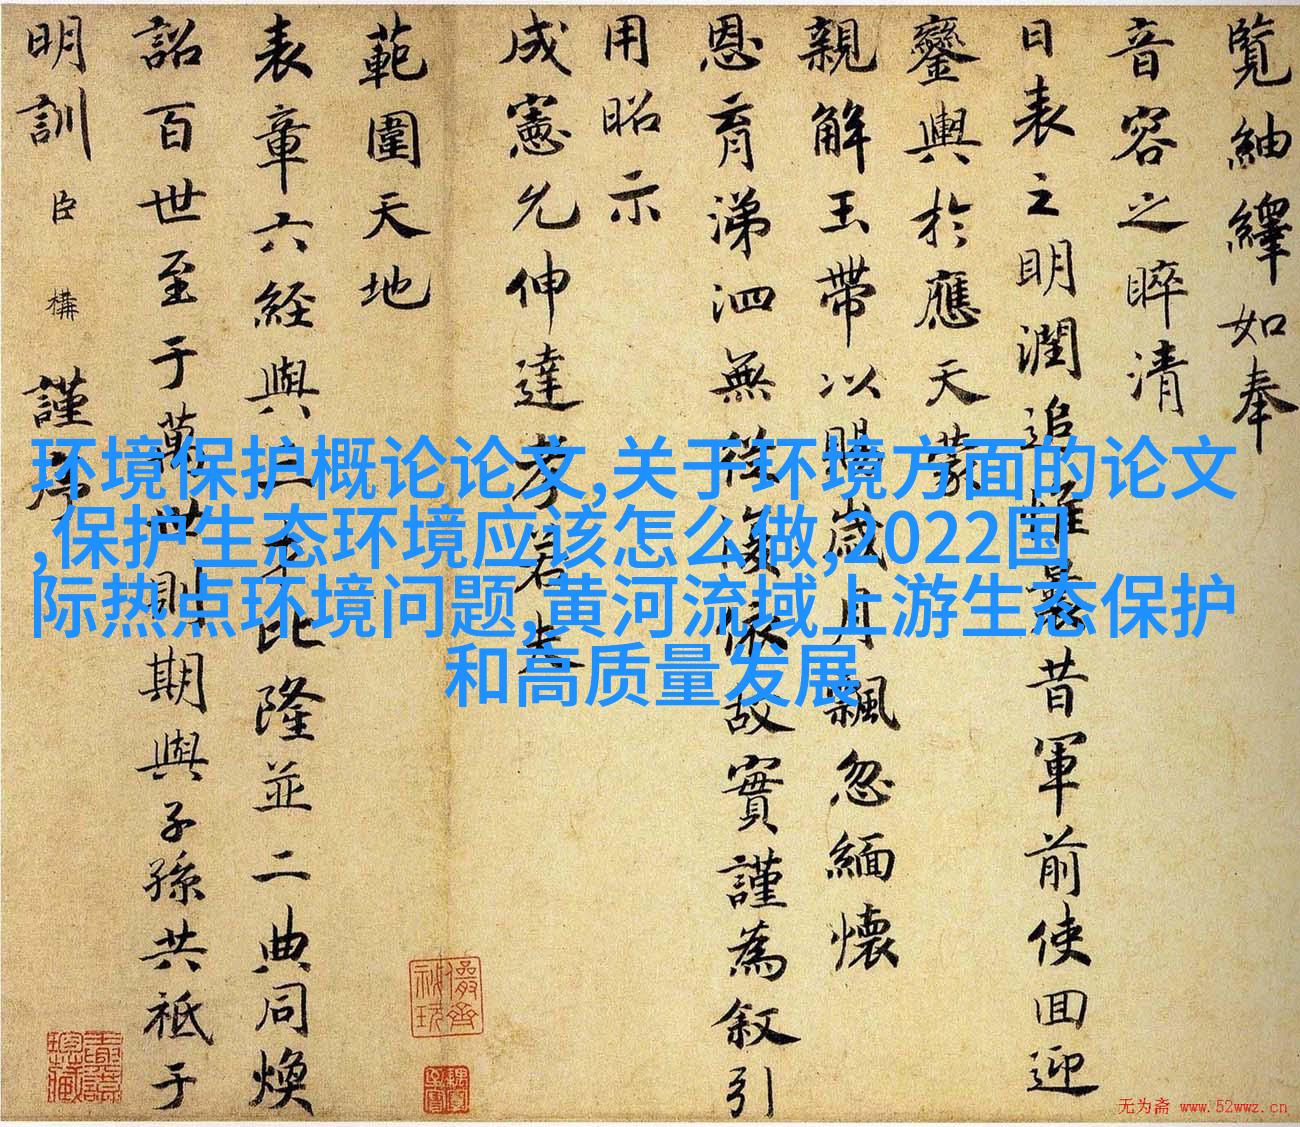 覽紬繹如奉
音容之睟清
日表之明潤追惟曩昔軍前使回迎
鑾輿於應天蒙
親解玉帶以賜歲月飄忽緬懷
恩育涕泗無從復依故實謹為叙引
用昭示
成憲允伸達孝若夫
範圍天地
表章六經與三光比隆並二典同煥
詔百世至于萬世則期與子孫共祗于
明訓臣構謹序
环境保护概论论文,关于环境方面的论文
,保护生态环境应该怎么做,2022国
际热点环境问题,黄河流域上游生态保护
和高质量发展
无为斋 www.52wwz.cn